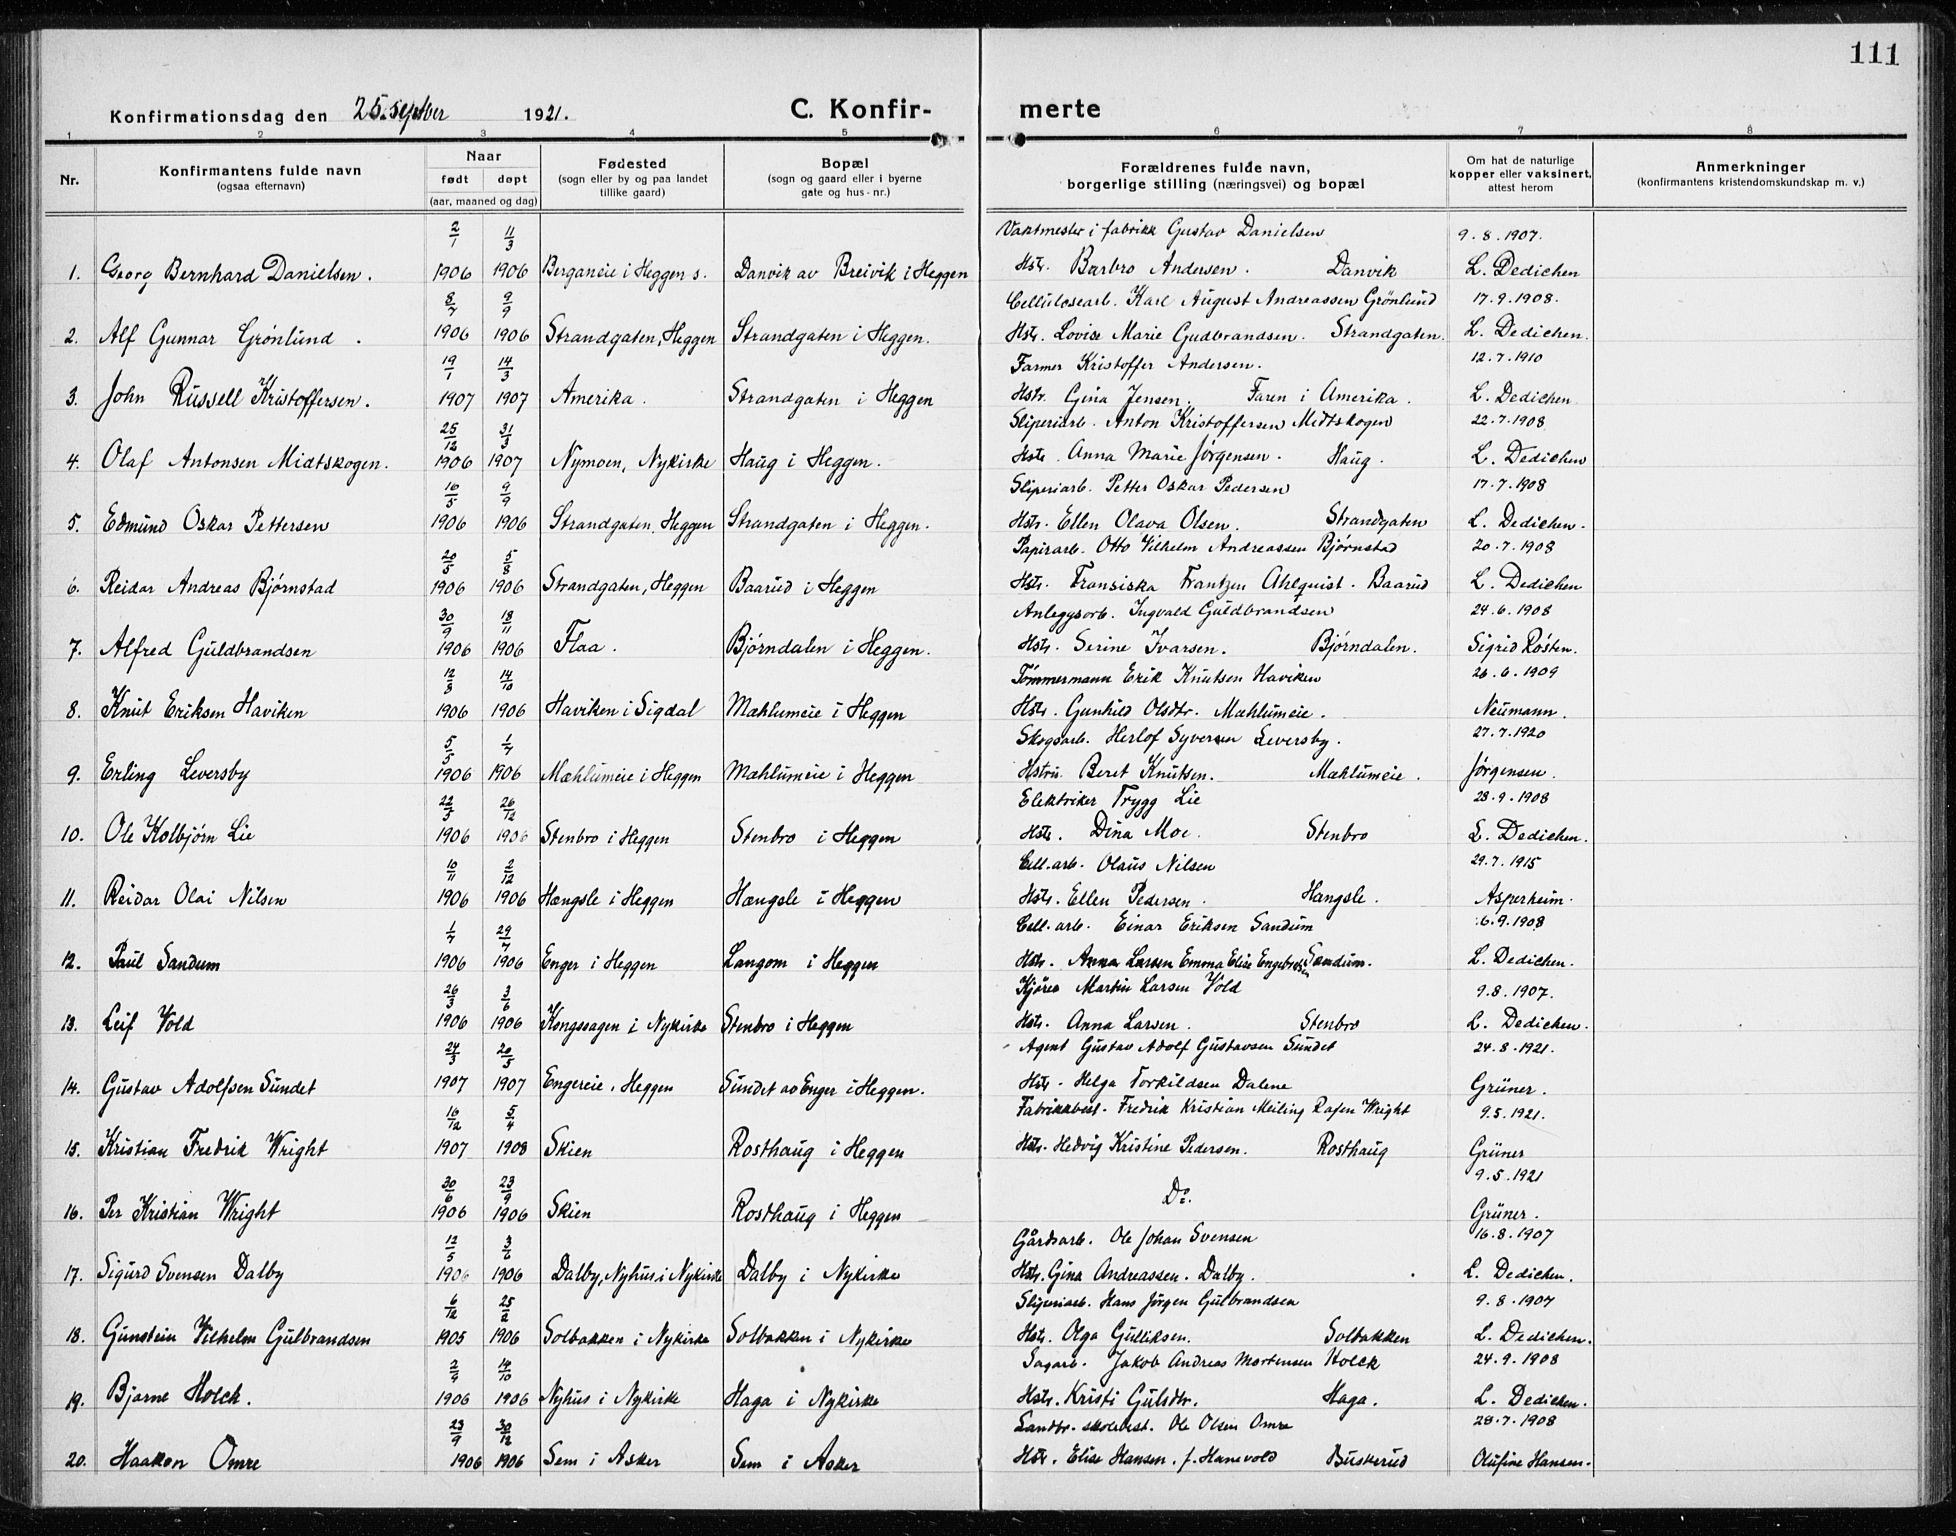 111
Konfirmationsdag den 25. septber 1921.
C. Konfirmerte
1 2 3 4 5 6 7 8
Nr.
Konfirmantens fulde navn
(ogsaa efternavn)
Naar
født døpt
(aar, maaned og dag)
Fødested
(sogn eller by og paa landet
tillike gaard)
Bopæl
(sogn og gaard eller i byerne
gate og hus-nr.)
Forældrenes fulde navn,
borgerlige stilling (næringsvei) og bopæl
Om hat de naturlige
kopper eller vaksinert,
attest herom
Anmerkninger
(konfirmantens kristendomskundskap m. v.)
2/1 11/3 Vaktmester i fabrikk Gustav Danielsen 9.8.1907.
1. Georg Bernhard Danielsen. 1906 1906 Berganeie i Heggen s. Danvik av Breivik i Heggen Hstr. Barbro Andersen. Danvik L. Dedichen
8/7 9/9 Cellulosearb. Karl August Andreassen Grönlund 17.9.1908.
2. Alf Gunnar Grønlund. 1906 1906 Strandgaten, Heggen Strandgaten i Heggen. Hstr. Lovise Marie Gudbrandsen. Strandgaten. L. Dedichen.
19/1 14/3 Farmer Kristoffer Andersen. 12.7.1910
3. John Russell Kristoffersen. 1907 1907 Amerika. Strandgaten i Heggen Hstr. Gina Jensen. Faren i Amerika. L. Dedichen
25/12 31/3 Sliperiarb. Anton Kristoffersen Midtskogen 22.7.1908
4. Olaf Antonsen Midtskogen. 1906 1907 Nymoen, Nykirke Haug i Heggen. Hstr. Anna Marie Jørgensen. Haug. L. Dedichen
16/5 9/9 Sliperiarb. Petter Oskar Pedersen 17.7.1908
5. Edmund Oskar Pettersen 1906 1906 Strandgaten, Heggen Strandgaten i Heggen. Hstr. Ellen Olava Olsen. Strandgaten L. Dedichen.
20/5 5/8 Papirarb. Otto Vilhelm Andreassen Bjørnstad 20.7.1908
6. Reidar Andreas Bjørnstad 1906 1906 Strandgaten, Heggen Baarud i Heggen Hstr. Fransiska Frantzen Ahlquist. Baarud L. Dedichen
30/9 18/11 Anlegsarb. Ingvald Guldbrandsen 24.6.1908
7. Alfred Guldbrandsen 1906 1906 Flaa. Bjørndalen i Heggen. Hstr. Serine Ivarsen. Bjørndalen. Sigrid Røsten.
12/3 14/10 Tömmermann Erik Knutsen Haviken 26.6.1909
8. Knut Eriksen Haviken 1906 1906 Haviken i Sigdal Mæhlumeie i Heggen Hstr. Gunhild Olsdtr. Mæhlumeie. Neumann.
5/5 1/7 Skogsarb. Herlof Syversen Leversby. 27.7.1920
9. Erling Leversby 1906 1906 Mæhlumeie i Heggen Mæhlumeie i Heggen Hstru Beret Knutsen. Mæhlumeie. Jørgensen.
22/3 26/12 Elektriker Trygg Lie 28.9.1908
10. Ole Kolbjørn Lie 1906 1906 Stenbro i Heggen Stenbro i Heggen Hstr. Dina Moe. Stenbro L. Dedichen.
10/11 2/12 Cell.arb. Olaus Nilsen 29.7.1915
11. Reidar Olai Nilsen 1906 1906 Hængsle i Heggen Hængsle i Heggen Hstr. Ellen Pedersen. Hangsle. Asperheim.
1/7 29/7 Cell.arb. Einar Eriksen Sandum 6.9.1908
12. Paul Sandum 1906 1906 Enger i Heggen Langom i Heggen Hstr. Anna Larsen Emma Elise Engebretsen Sandum. L. Dedichen.
26/3 3/6 Kjører Martin Larsen Vold 9.8.1907.
13. Leif Vold 1906 1906 Kongssagen i Nykirke Stenbro i Heggen Hstr. Anna Larsen. Stenbro L. Dedichen.
24/3 20/5 Agent Gustav Adolf Gustavsen Sundet 24.8.1921.
14. Gustav Adolfsen Sundet 1907 1907 Engereie, Heggen Sundet av Enger i Heggen. Hstr. Helga Torkildsen Dalene Grüner.
16/12 5/4 Fabrikkbest. Fredrik Kristian Meiling Rafen Wright 9.5.1921.
15. Kristian Fredrik Wright 1907 1908 Skien Rosthaug i Heggen Hstr. Hedvig Kristine Pedersen. Rosthaug Grüner
30/6 23/9 9.5.1921
16. Per Kristian Wright 1906 1906 Skien Rosthaug i Heggen Do. Grüner.
12/5 3/6 Gårdsarb. Ole Johan Svensen 16.8.1907
17. Sigurd Svensen Dalby 1906 1906 Dalby, Nyhus i Nykirke Dalby i Nykirke Hstr. Gina Andreassen. Dalby. L. Dedichen.
6/12 25/2 Sliperiarb. Hans Jørgen Gulbrandsen 9.8.1907
18. Gunstein Vilhelm Gulbrandsen 1905 1906 Solbakken i Nykirke Solbakken i Nykirke Hstr. Olga Gulliksen. Solbakken L. Dedichen.
2/9 14/10 Sagarb. Jakob Andreas Mortensen Holck 24.9.1908
19. Bjarne Holck. 1906 1906 Nyhus i Nykirke Haga i Nykirke Hstr. Kristi Gulsdtr. Haga. L. Dedichen.
23/9 30/12 Landbr. skolebest. Ole Olsen Omre 28.7.1908
20. Haakon Omre 1906 1906 Sem i Asker Sem i Asker Hstr. Elise Hansen. f. Hanevold Buskerud Olufine Hansen.